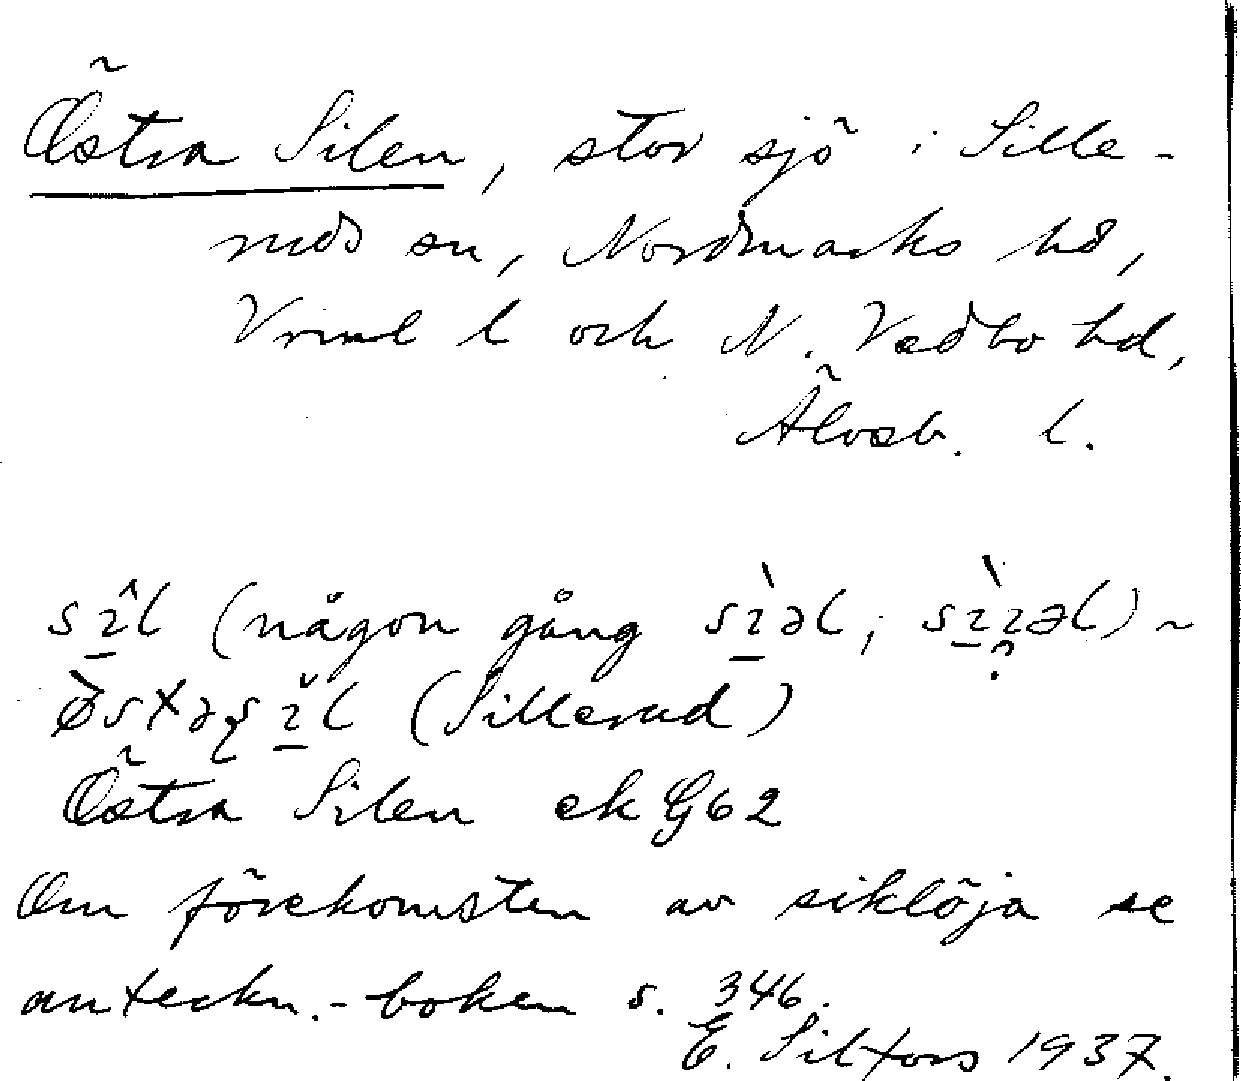 Östra Silen, stor sjö i Sille-
ruds sn, Nordmarks hd,
Vrml l och N. Vedbo hd,
Älvsb. l.
sɪ̱̂l (någon gång sɪ̱̀əl; sɪ̱̀ɪəl) ~
(Sillerud)
Östra Silen ek G62
Om förekomsten av siklöja se
anteckn.-boken s. 346.
E. Silfors 1937.